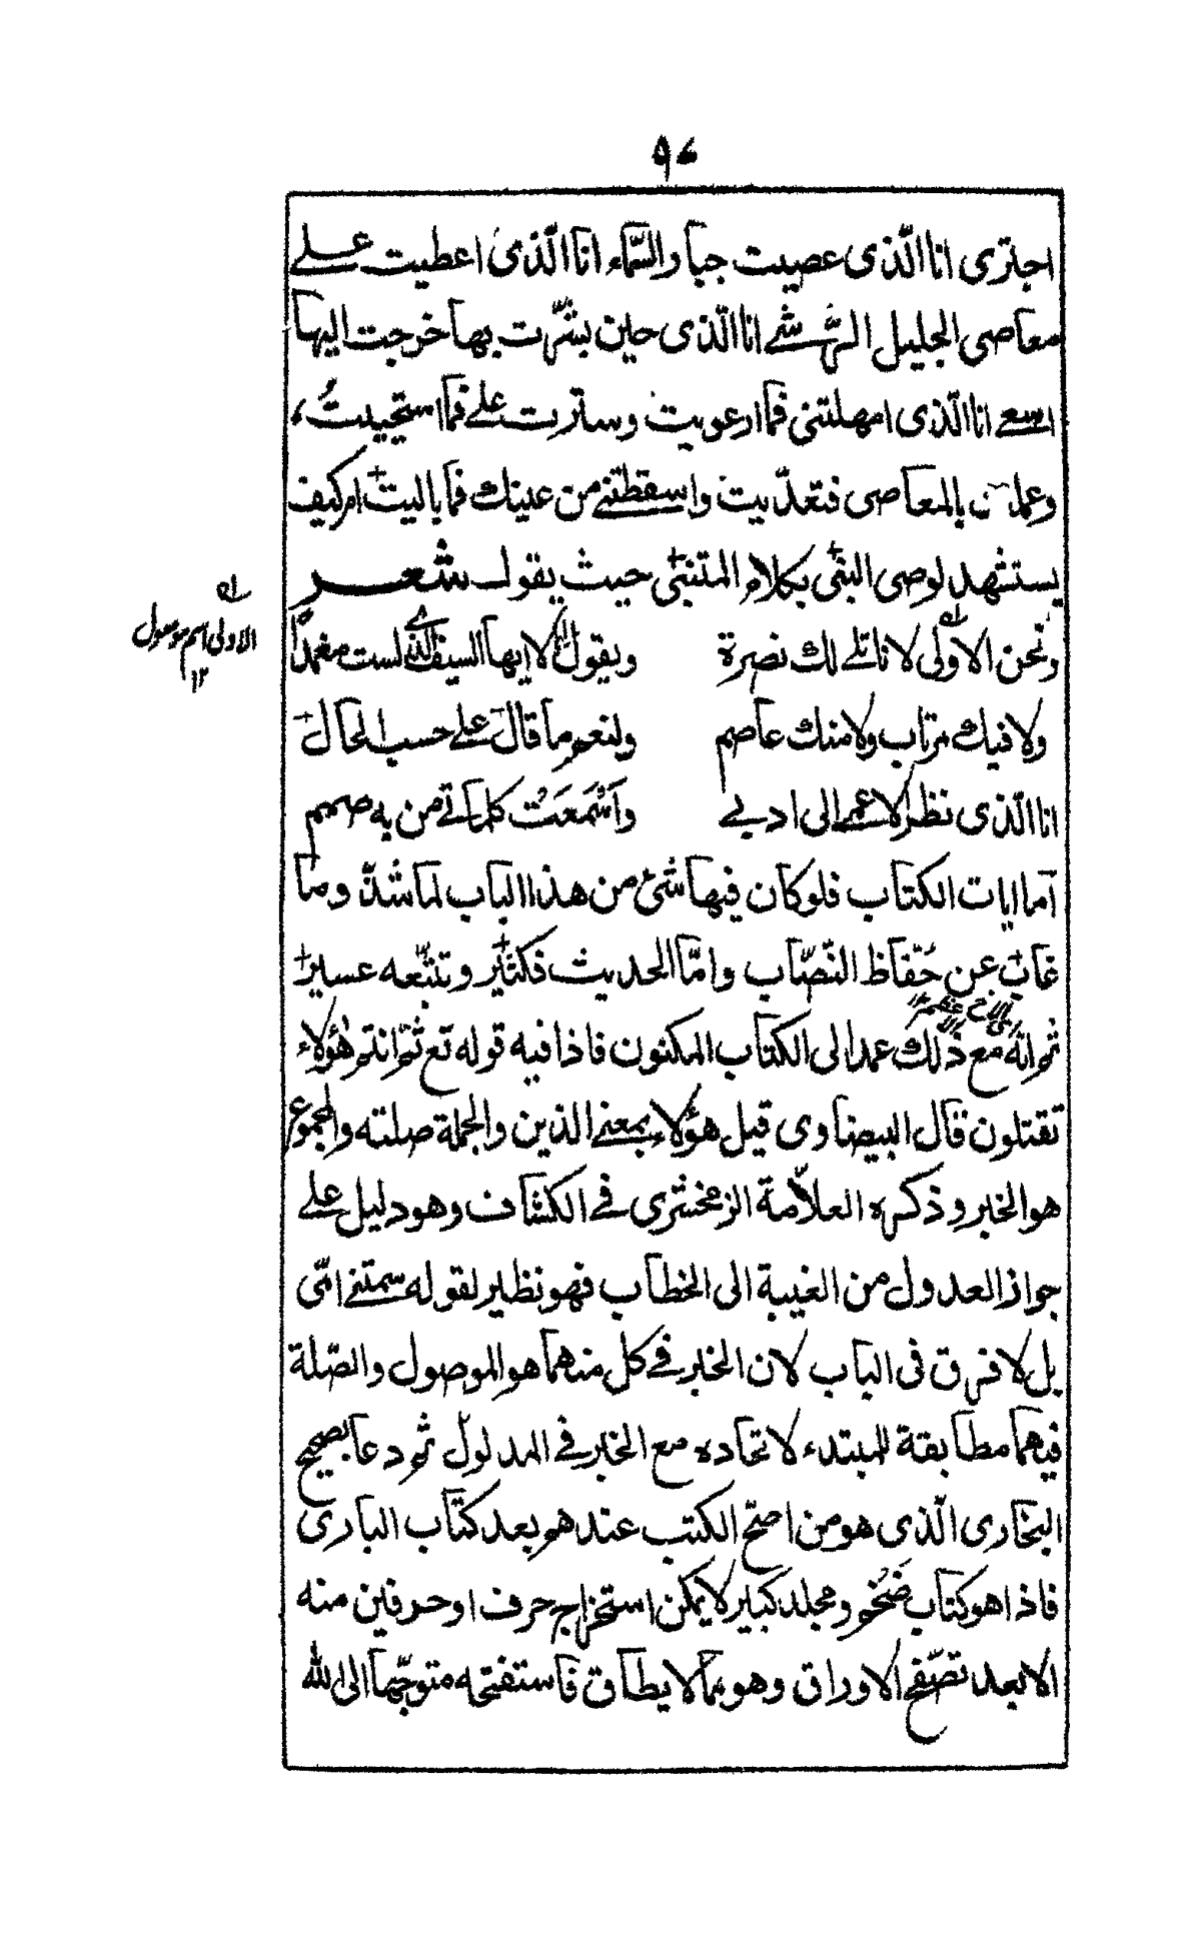 ٩٧
اجترى انا الّذى عصيت جبار السّماء انا الّذى اعطيت على
معاصى الجليل الرُّشى انا الّذى حين بشّرت بها خرجت اليها
اسعى انا الّذى امهلتنى فما ارعويت وسترت على فما استحييتُ
وعملت بالمعاصى فتعدّيت واسقطتنى من عينك فما باليت ام كيف
يستشهد لوصى النبى بكلام المتنبى حيث يقول شعر
ونحن الاولى لا ناتلى لك نصرة ويقول لا ايها السيف الذى لست مغمدا
ولا فيك مرتاب ولا منك عاصم ولنعم ما قال على حسب الحال
انا الّذى نظر الاعمى الى ادبى واَسْمَعَتْ كلماتى من به صمم
اما ايات الكتاب فلو كان فيها شئ من هذا الباب لما شذّ وما
غاب عن حَفّاظ النّصّاب وامّا الحديث فكثير وتتبّعه عسير
ثم انّه مع ذلك عمد الى الكتاب المكنون فاذا فيه قوله تع ثم انتم هؤلاء
تقتلون قال البيضاوى قيل هؤلاء بمعنى الذين والجملة صلته والمجموع
هو الخبر وذكره العلاّمة الزمخشرى فى الكشاف وهو دليل على
جواز العدول من الغيبة الى الخطاب فهو نظير لقوله سمتنى امّى
بل لا فرق فى الباب لان الخبر فى كل منهما هو الموصول والصّلة
فيهما مطابقة للمبتدء لاتحاده مع الخبر فى المدلول ثم دعا بصحيح
البخارى الّذى هو من اصحّ الكتب عندهم بعد كتاب البارى
فاذا هو كتاب ضَخْم ومجلد كبير لا يمكن استخراج حرف او حرفين منه
الا بعد تصفّح الاوراق وهو مما لا يطاق فاستفتحه متوجّها الى الله
له
الاولى اسم موصول
١٢